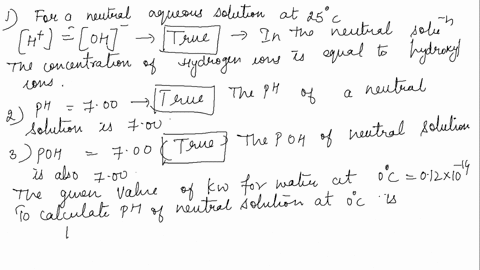 1) For a neutral aqueous solution at 25°C
[H⁺] = [OH]⁻ → True → In the neutral soluⁿ
The concentration of Hydrogen ions is equal to hydroxyl
ions.
2) PH = 7.00 → True The PH of a neutral
solution is 7.00.
3) POH = 7.00 (True) The POH of neutral solution
is also 7.00.
The given value of Kw for water at 0°C = 0.12×10⁻¹⁴
To calculate PH of neutral solution at 0°C is